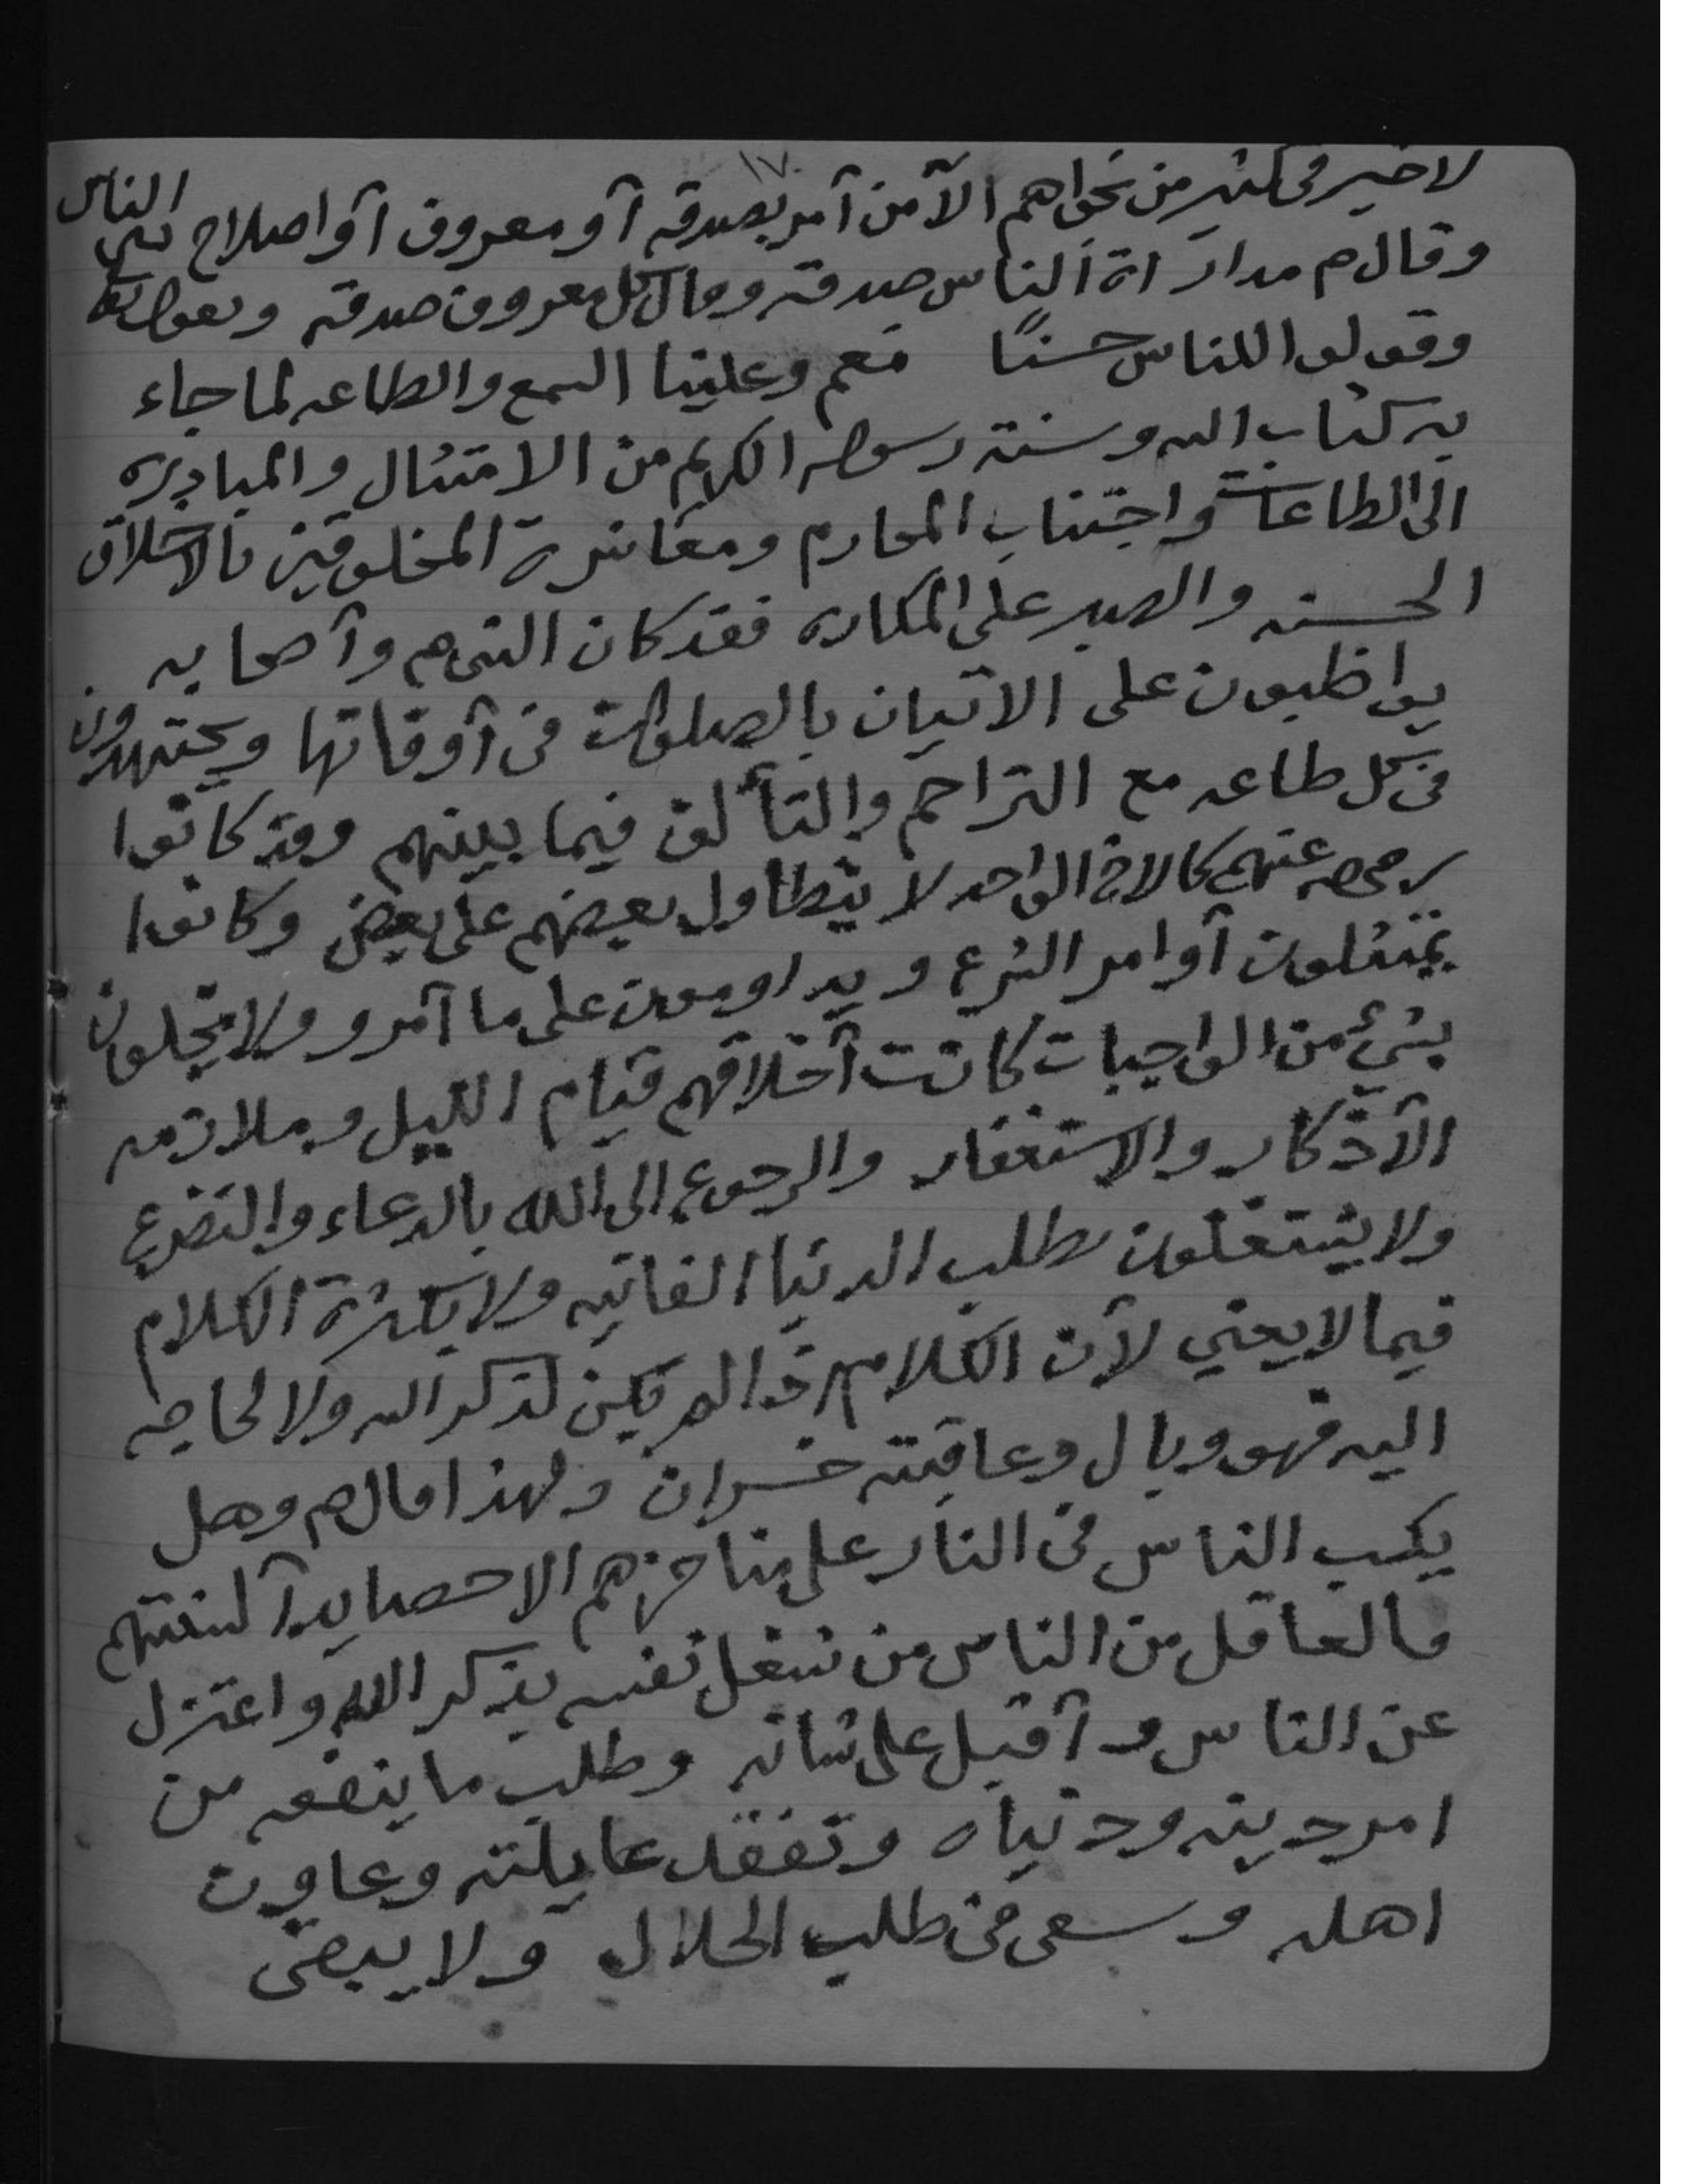 ١٧
لا خير في كثير من نجواهم الا من آمر بصدقه آو معروف آو اصلاح بين الناس
وقال م مداراة الناس صدقه وقال كل معروف صدقه ويقول تعا
وقولوا للناس حسنًا نعم وعلينا السمع والطاعه لما جاء
به كتاب الله وسنة رسوله الكريم من الامتثال والمبادره
الى الطاعات واجتناب المحارم ومعاشرة المخلوقين بالاخلاق
الحسنه والصبر على المكاره فقد كان النبي م وآصحابه
يواظبون على الاتيان بالصلوات في آوقاتها ويجتهدون
في كل طاعه مع التراحم والتآلف فيما بينهم وقد كانوا
رضي الله عنهم كالاخ الواحد لا يتطاول بعضهم على بعض وكانوا
يمتثلون آوامر الشرع ويداومون على ما آمرو ولا يخلون
بشيء من الواجبات كانت آخلاقهم قيام الليل وملازمه
الآذكار والاستغفار والرجوع الى الله بالدعاء والتضرع
ولا يشتغلون بطلب الدنيا الفانيه ولا بكثرة الكلام
فيما لا يعني لآن الكلام اذا لم يكن لذكر الله ولا لحاجه
اليه فهو وبال وعاقبته خسران ولهذا قال م وهل
يكب الناس في النار على مناخرهم الا حصايد آلسنتهم
فالعاقل من الناس من شغل نفسه بذكر الله واعتزل
عن الناس وآقبل على شانه وطلب ما ينفعه من
امر دينه ودنياه وتفقد عايلته وعاون
اهله وسعى في طلب الحلال ولا يبقى